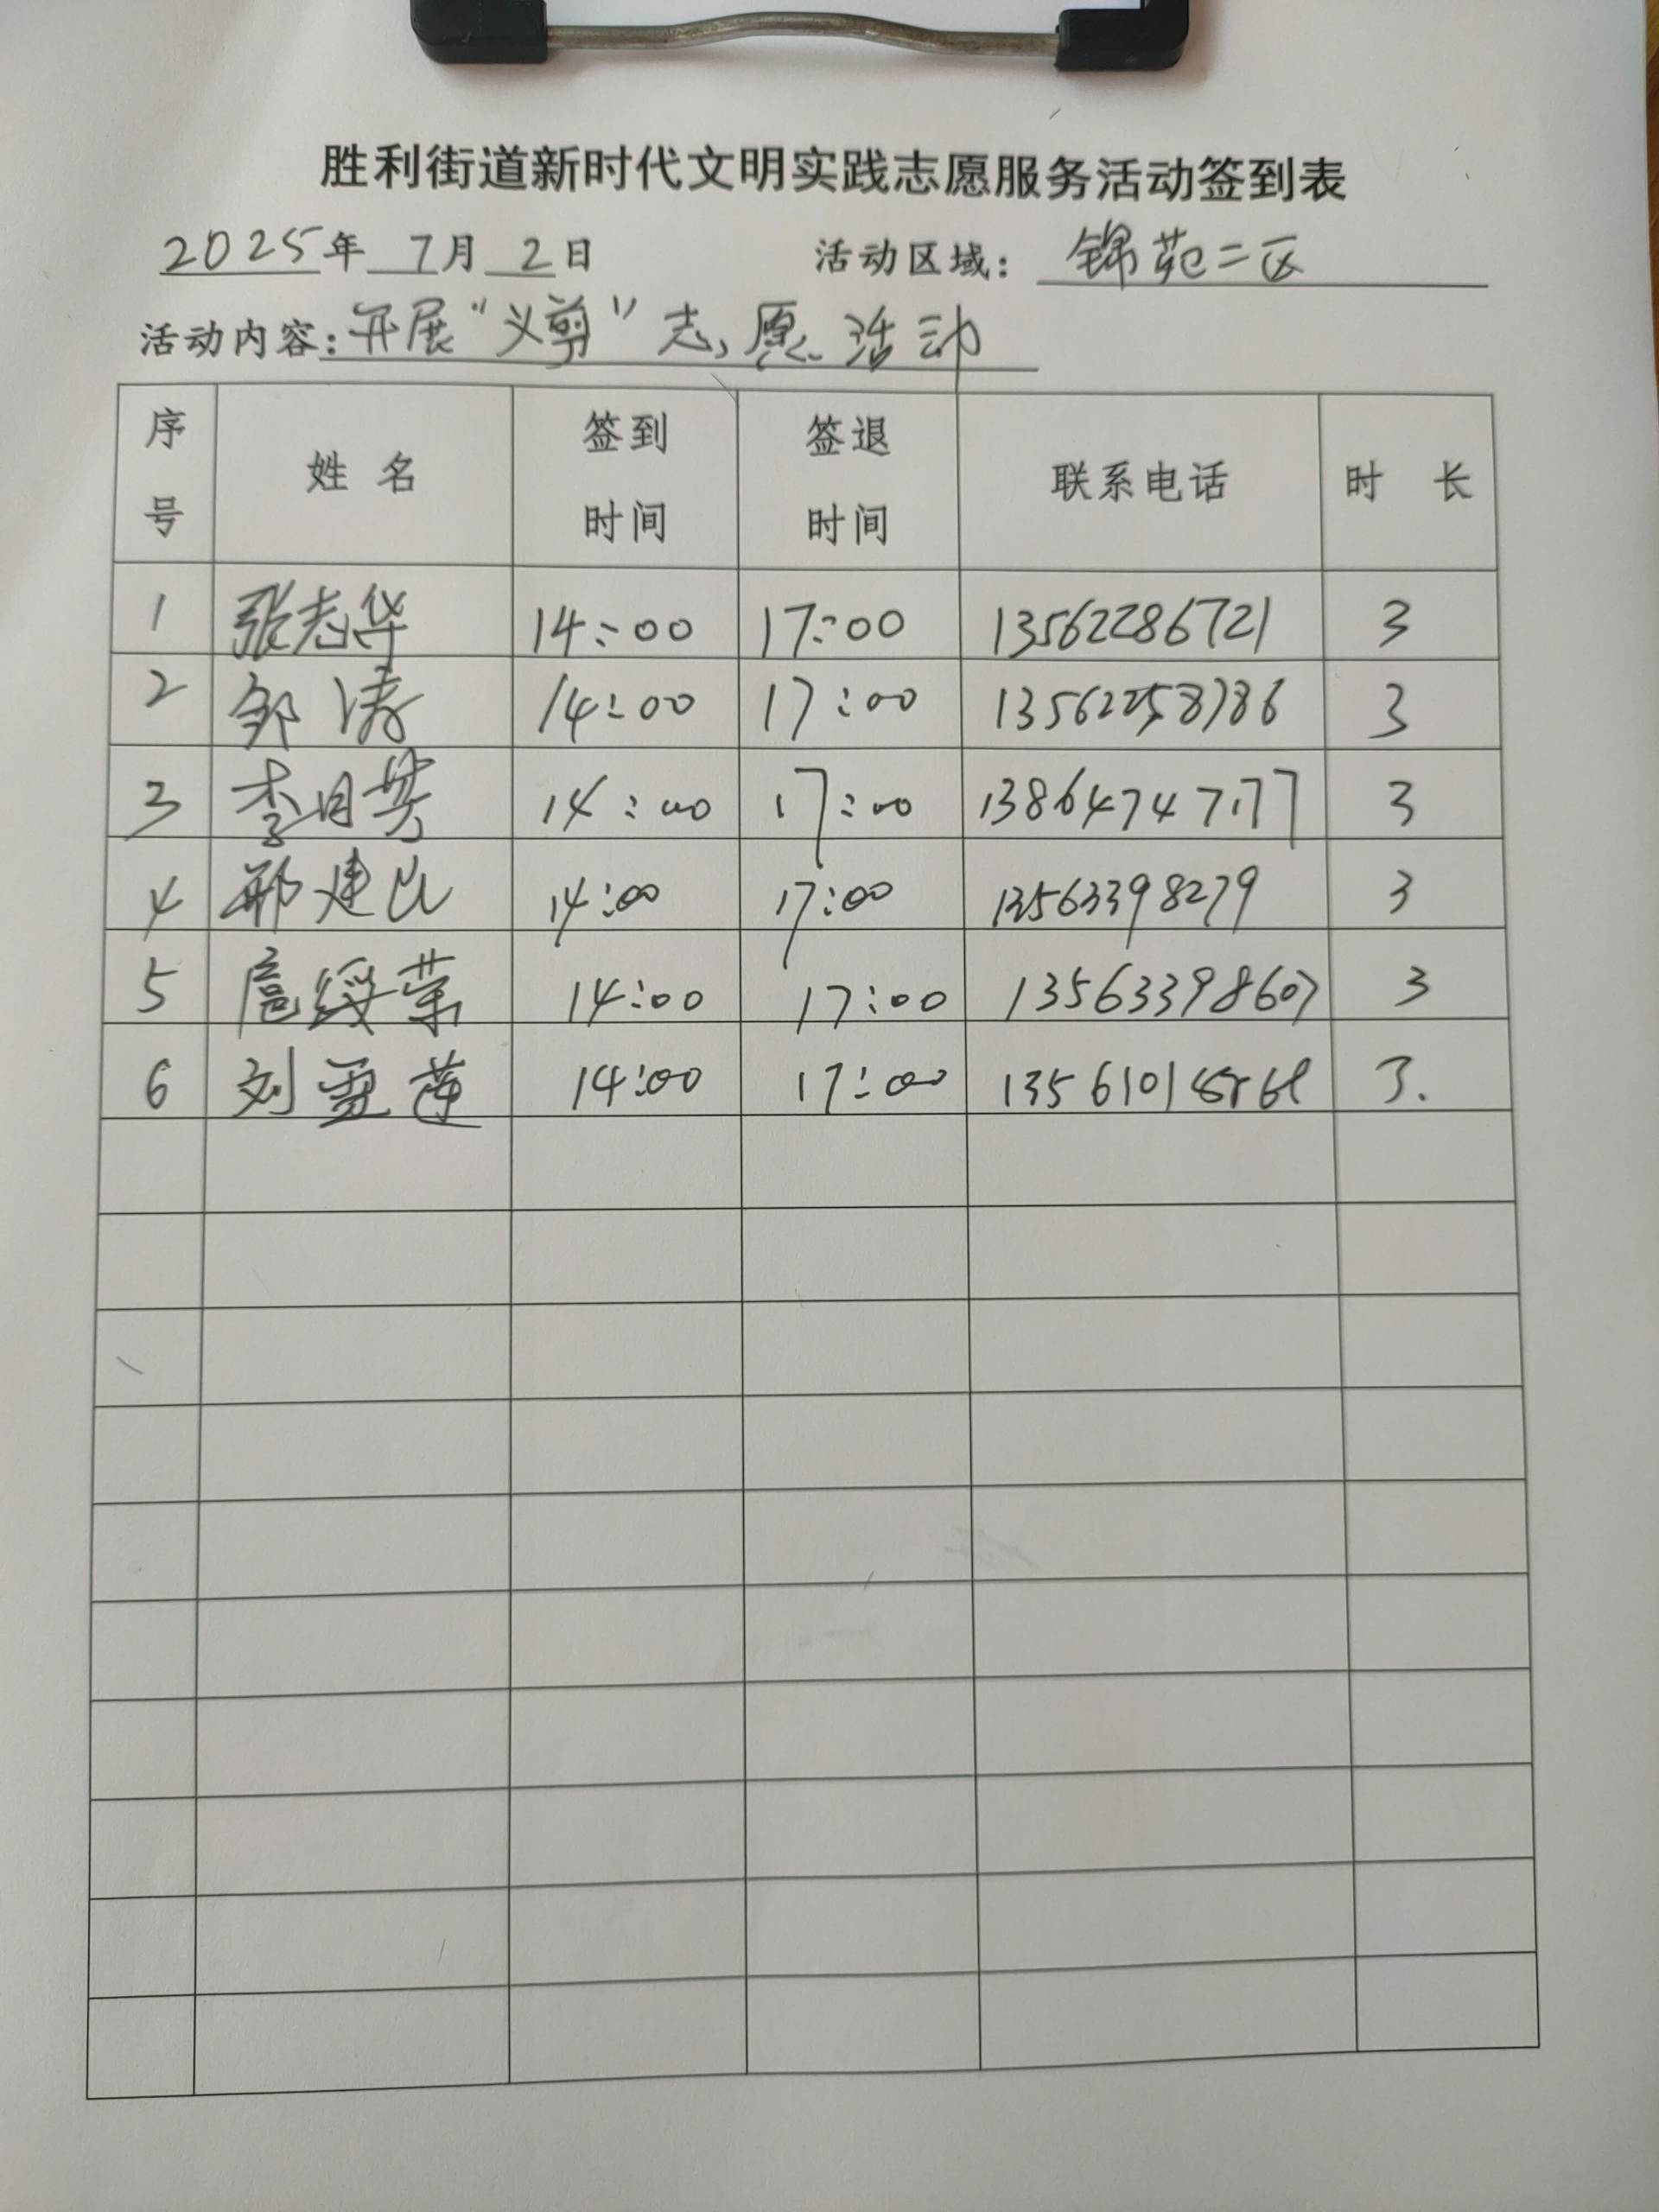 胜利街道新时代文明实践志愿服务活动签到表
2025年 7月 2日 活动区域: 锦苑二区
活动内容: 开展“义剪”志愿活动
序号 姓名 签到时间 签退时间 联系电话 时长
1 张志华 14:00 17:00 13562286721 3
2 邹涛 14:00 17:00 3
3 李月英 14:00 17:00 13864747177 3
4 邢建民 14:00 17:00 13563398279 3
5 扈绶荣 14:00 17:00 13563398607 3
6 刘雪莲 14:00 17:00 3.